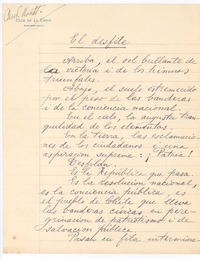 El desfile
Arriba, el sol brillante de
la victoria i de los himnos
triunfales.
Abajo, el suelo estremecido
por el peso de las banderas
i de la conciencia nacional.
En el cielo, la augusta tran
quilidad de los elementos.
En la tierra, las esclamacio
nes de los ciudadanos i una
aspiracion suprema: ¡Patria!
Desfilan.
Es la República que pasa.
Es la resolucion nacional,
es la conciencia pública, es
el pueblo de Chile que lleva
las banderas cívicas en pere
grinacion de patriotismo i de
salvacion pública.
Pasan en fila intermina